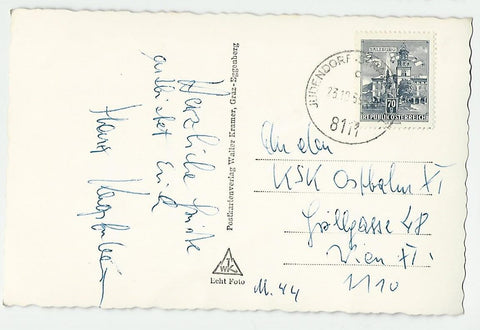 Herzliche Grüße
entbietet Euch
Hans
Postkartenverlag Walter Kramer, Graz-Eggenberg
WK
Echt Foto
M. 44
SALZBURG
70
REPUBLIK ÖSTERREICH
JUDENDORF-
8111
An den
KSK Ostbahn XI
Gröllgasse 48
Wien XI.
1110